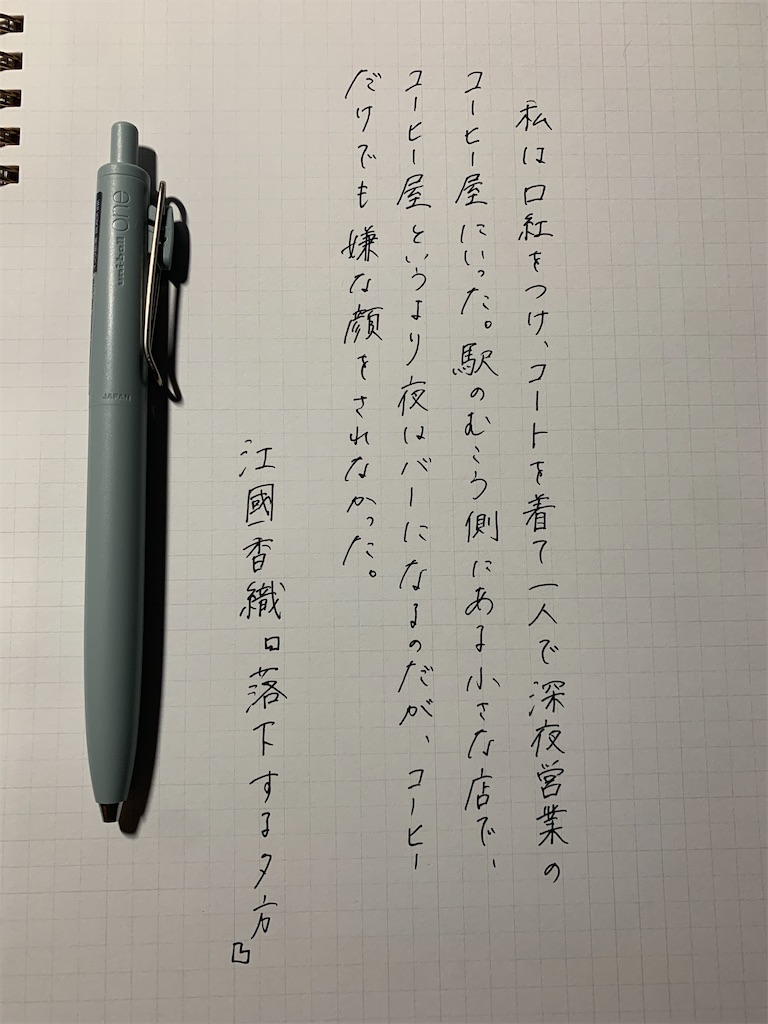 私は口紅をつけ、コートを着て一人で深夜営業の
コーヒー屋にいった。駅のむこう側にある小さな店で、
コーヒー屋というより夜はバーになるのだが、コーヒー
だけでも嫌な顔をされなかった。
江國香織『落下する夕方』
uniball one
JAPAN